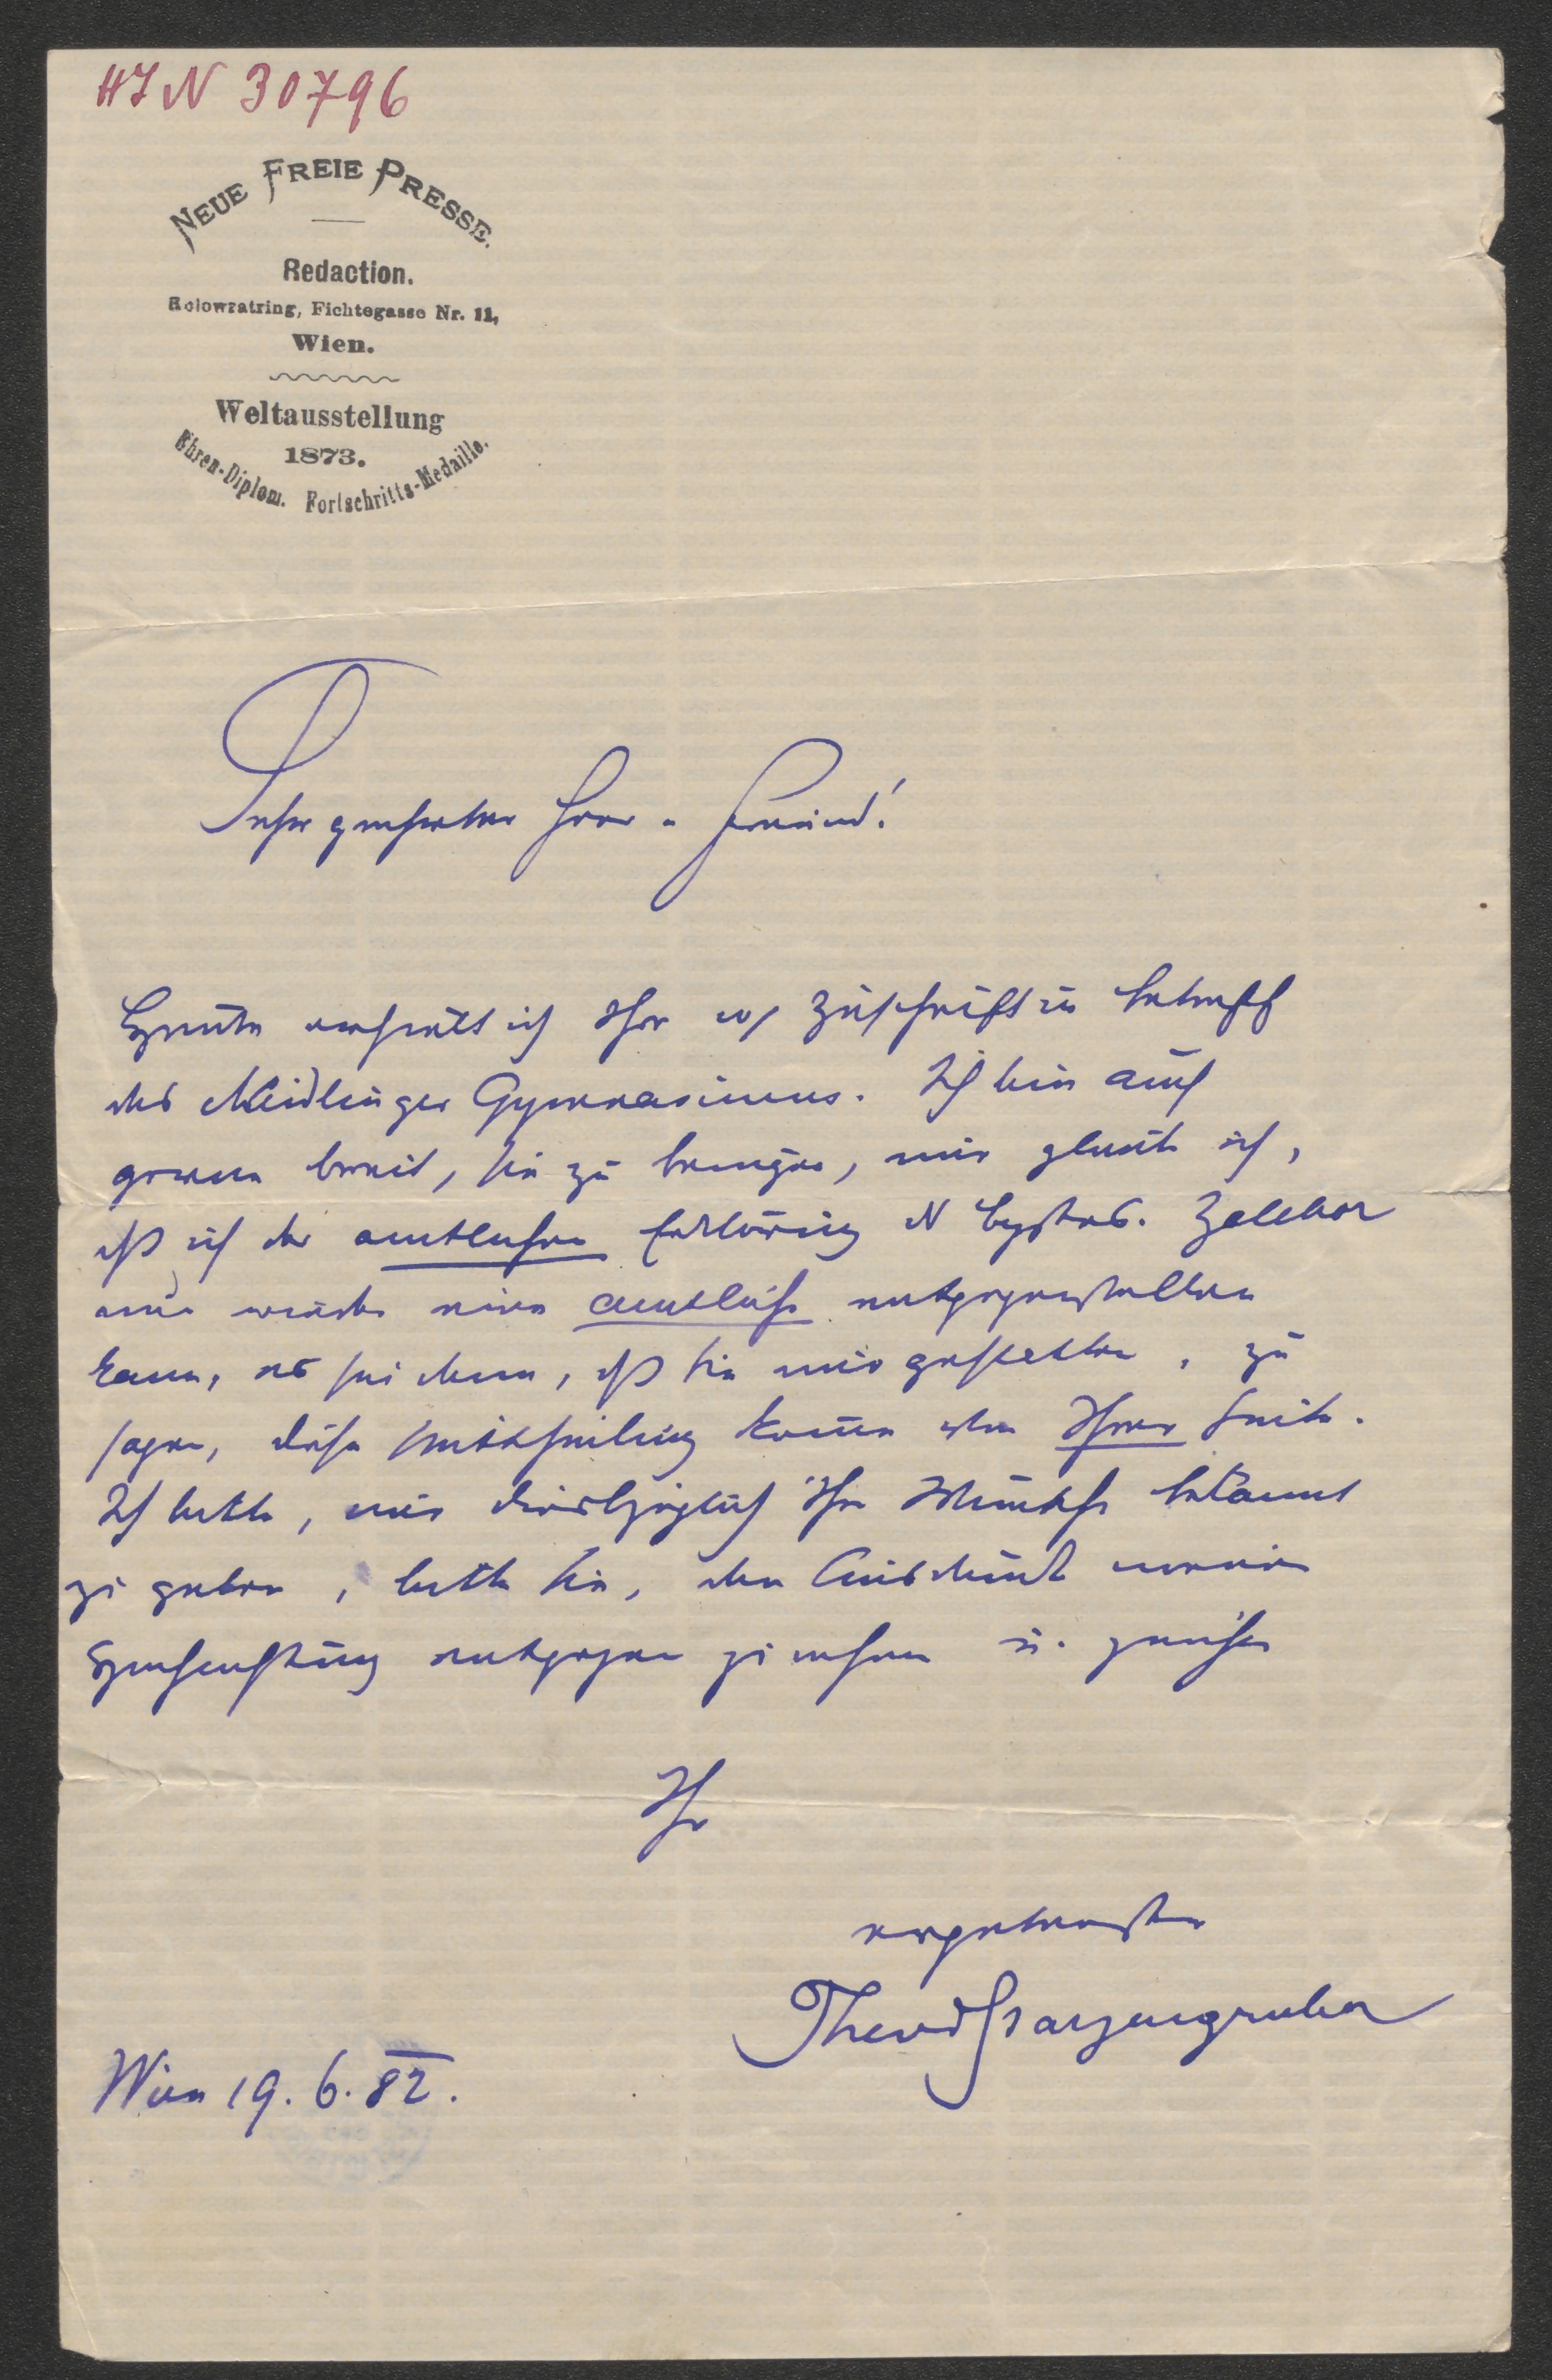 HIN 30796
NEUE FREIE PRESSE.
Redaction.
Kolowratring, Fichtegasse Nr. 11,
Wien.
Weltausstellung
1873.
Ehren-Diplom. Fortschritts-Medaille.
Sehr geehrter Herr u. Freund!
Heute erhielt ich Ihre Zuschrift in betreff
des Meidlinger Gymnasiums. Ich bin auch
gerne bereit, sie zu bringen, nur glaube ich,
dß ich der amtlichen Erklärung d Bgstrs. Zelebor
nur wieder eine amtliche entgegenstellen
kann, es sei denn, dß Sie mir gestatten, zu
sagen, diese Mittheilung komme von Ihrer Seite.
Ich bitte, mir diesbezüglich Ihre Wünsche bekannt
zu geben, bitte Sie, den Ausdruck meiner
Hochachtung entgegen zu nehmen u. zeichne
Ihr
ergebenster
Theodor Harzengruber
Wien 19. 6. 82.